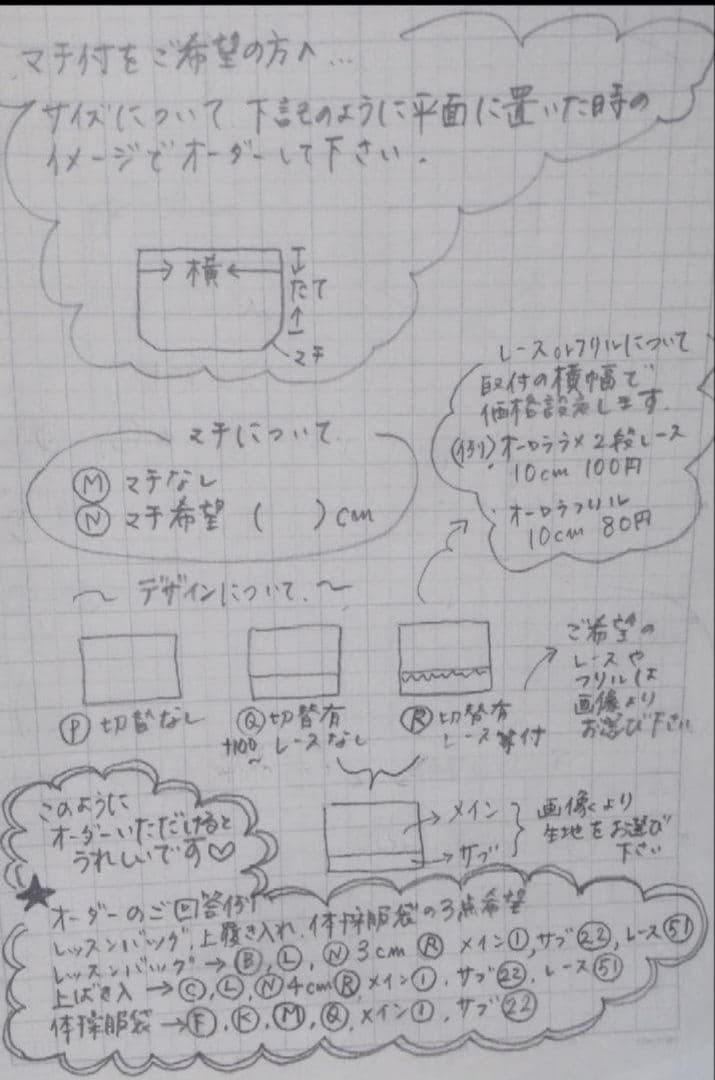 マチ付をご希望の方へ…
サイズについて 下記のように平面に置いた時の
イメージでオーダーして下さい.
横
たて
マチ
レースorフリルについて
取付の横幅で
価格設定します.
(例)オーロララメ2段レース
10cm 100円
・オーロラフリル
10cm 80円
マチについて
Ⓜ マチなし
Ⓝ マチ希望 ( )cm
〜 デザインについて. 〜
Ⓟ 切替なし
Ⓠ 切替有
+100〜 レースなし
Ⓡ 切替有
レース等付
ご希望の
レースや
フリルは
画像より
お選び下さい
メイン
サブ
画像より
生地をお選び
下さい
このように
オーダーいただけると
うれしいです♡
★
オーダーのご回答例
レッスンバッグ, 上履き入れ, 体操服袋の3点希望
レッスンバッグ→Ⓑ, Ⓛ, Ⓝ3cm Ⓡ メイン①, サブ㉒, レース㊿①
上ばき入 →Ⓒ, Ⓛ, Ⓝ4cmⓇ, メイン①, サブ㉒, レース㊿①
体操服袋→Ⓕ, Ⓚ, Ⓜ, Ⓠ, メイン①, サブ㉒